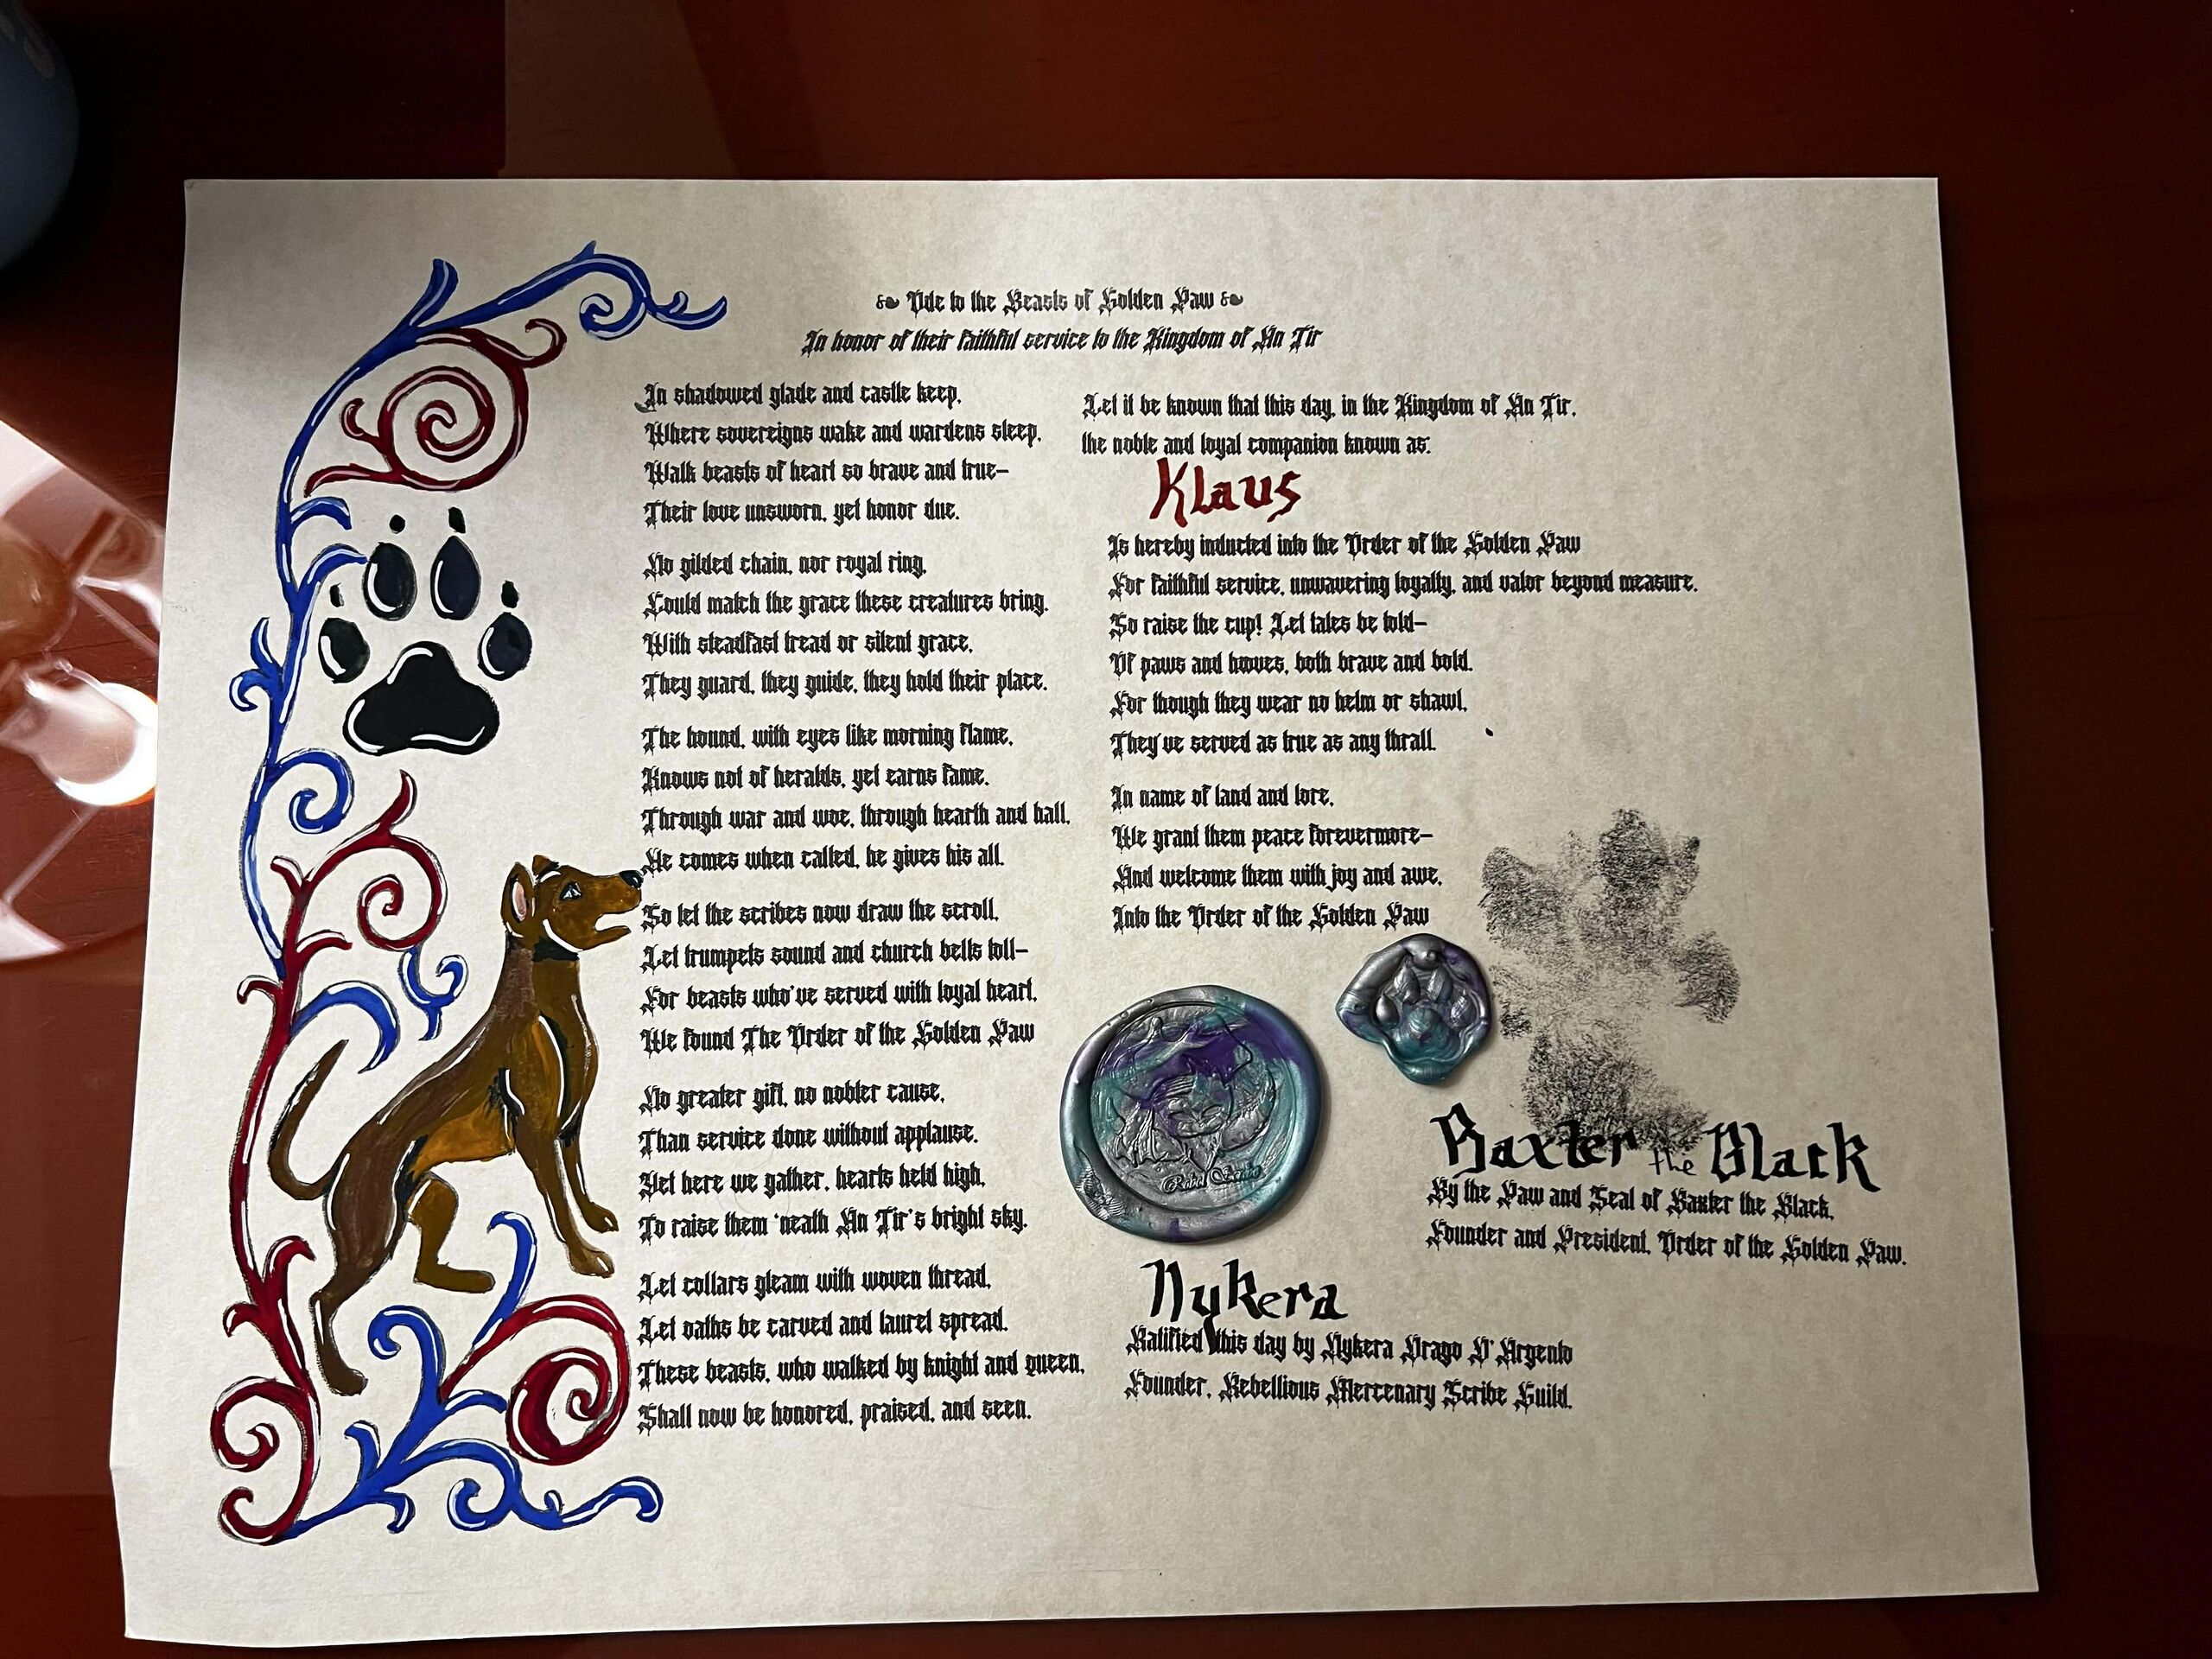 Ode to the Beasts of Golden Paw
In honor of their faithful service to the Kingdom of An Tir
In shadowed glade and castle keep,
Where sovereigns wake and wardens sleep,
Walk beasts of heart so brave and true—
Their love unsworn, yet honor due.
No gilded chain, nor royal ring,
Could match the grace these creatures bring.
With steadfast tread or silent grace,
They guard, they guide, they hold their place.
The hound, with eyes like morning flame,
Knows not of heralds, yet earns fame.
Through war and woe, through hearth and hall,
He comes when called, he gives his all.
So let the scribes now draw the scroll,
Let trumpets sound and church bells toll—
For beasts who've served with loyal heart,
We found The Order of the Golden Paw
No greater gift, no nobler cause,
Than service done without applause.
Yet here we gather, hearts held high,
To raise them 'neath An Tir's bright sky.
Let collars gleam with woven thread,
Let oaths be carved and laurel spread.
These beasts, who walked by knight and queen,
Shall now be honored, praised, and seen.
Let it be known that this day, in the Kingdom of An Tir,
the noble and loyal companion known as:
Klaus
Is hereby inducted into the Order of the Golden Paw
For faithful service, unwavering loyalty, and valor beyond measure.
So raise the cup! Let tales be told—
Of paws and hooves, both brave and bold.
For though they wear no helm or shawl,
They've served as true as any thrall.
In name of land and lore,
We grant them peace forevermore—
And welcome them with joy and awe,
Into the Order of the Golden Paw
Rebel Scribe
Baxter the Black
By the Paw and Seal of Baxter the Black,
Founder and President, Order of the Golden Paw.
Nykera
Ratified this day by Nykera Drago D'Argento
Founder, Rebellious Mercenary Scribe Guild.